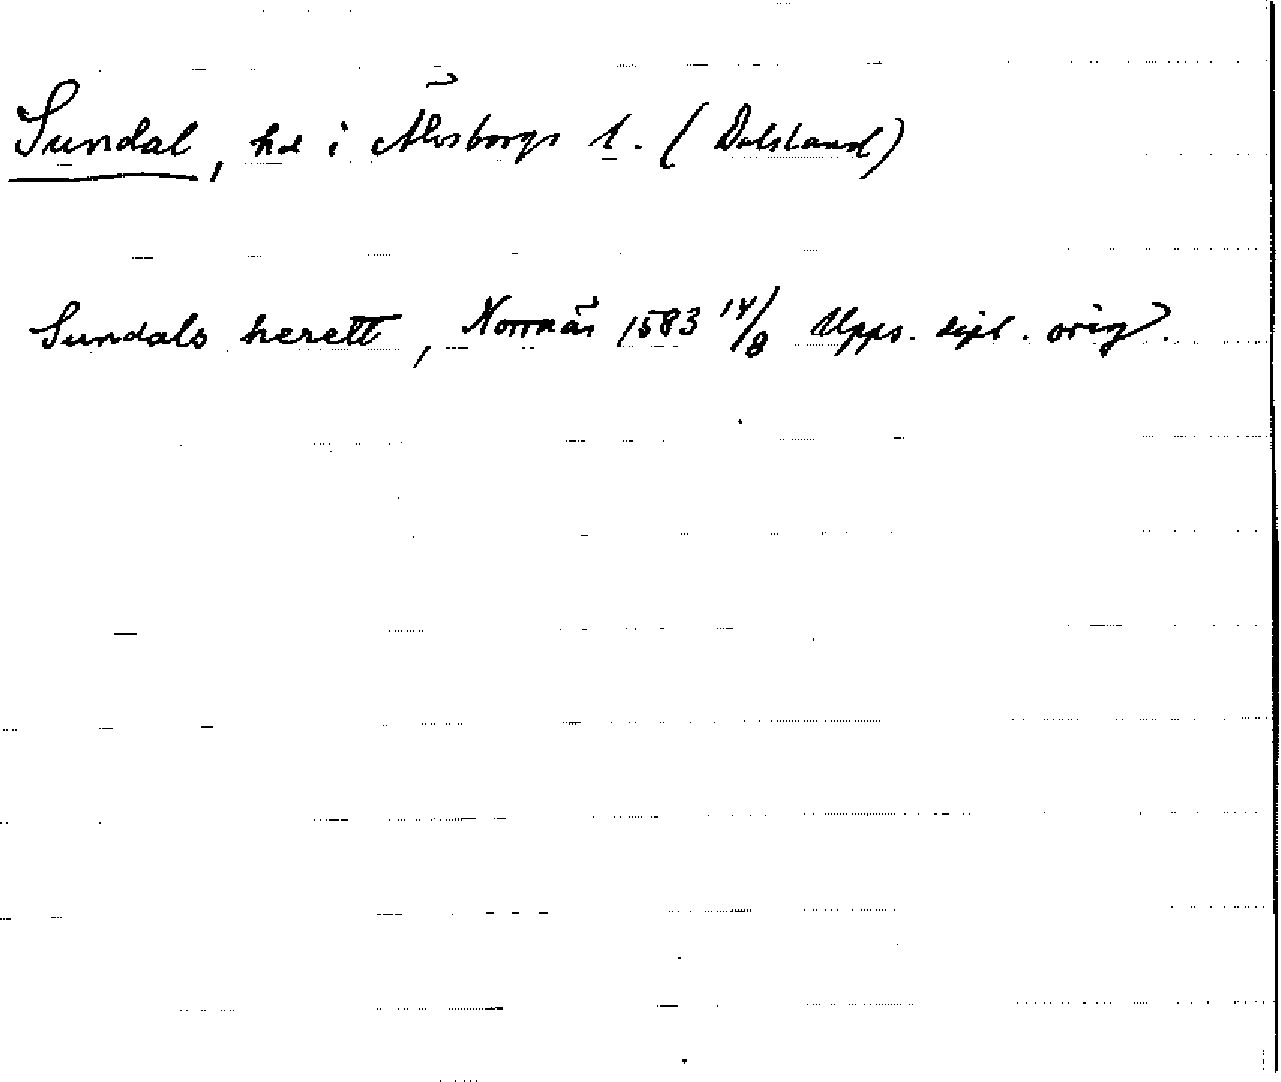 Sundal, hd i Älvsborgs l. (Dalsland)
Sundals herett, Norrnäs 1583 14/8 Upps. dipl. orig.